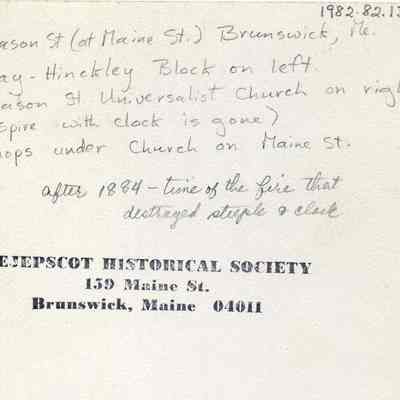 1982.82.13
ason St (at Maine St.) Brunswick, Me.
ay-Hinckley Block on left.
ason St Universalist Church on righ
Spire with clock is gone)
hops under Church on Maine St.
after 1884 - time of the fire that
destroyed steeple & clock
EJEPSCOT HISTORICAL SOCIETY
159 Maine St.
Brunswick, Maine 04011